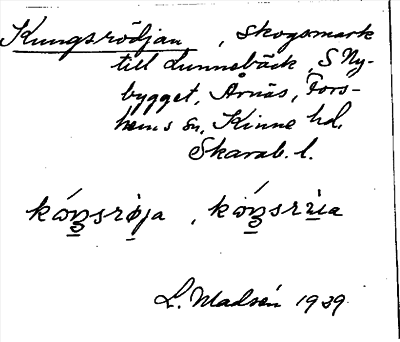 Kungsrödjan, skogsmark
till Lunnebäck, S Ny-
bygget, Årnäs, Fors-
hems sn, Kinne hd,
Skarab. l.
L. Madsén 1939